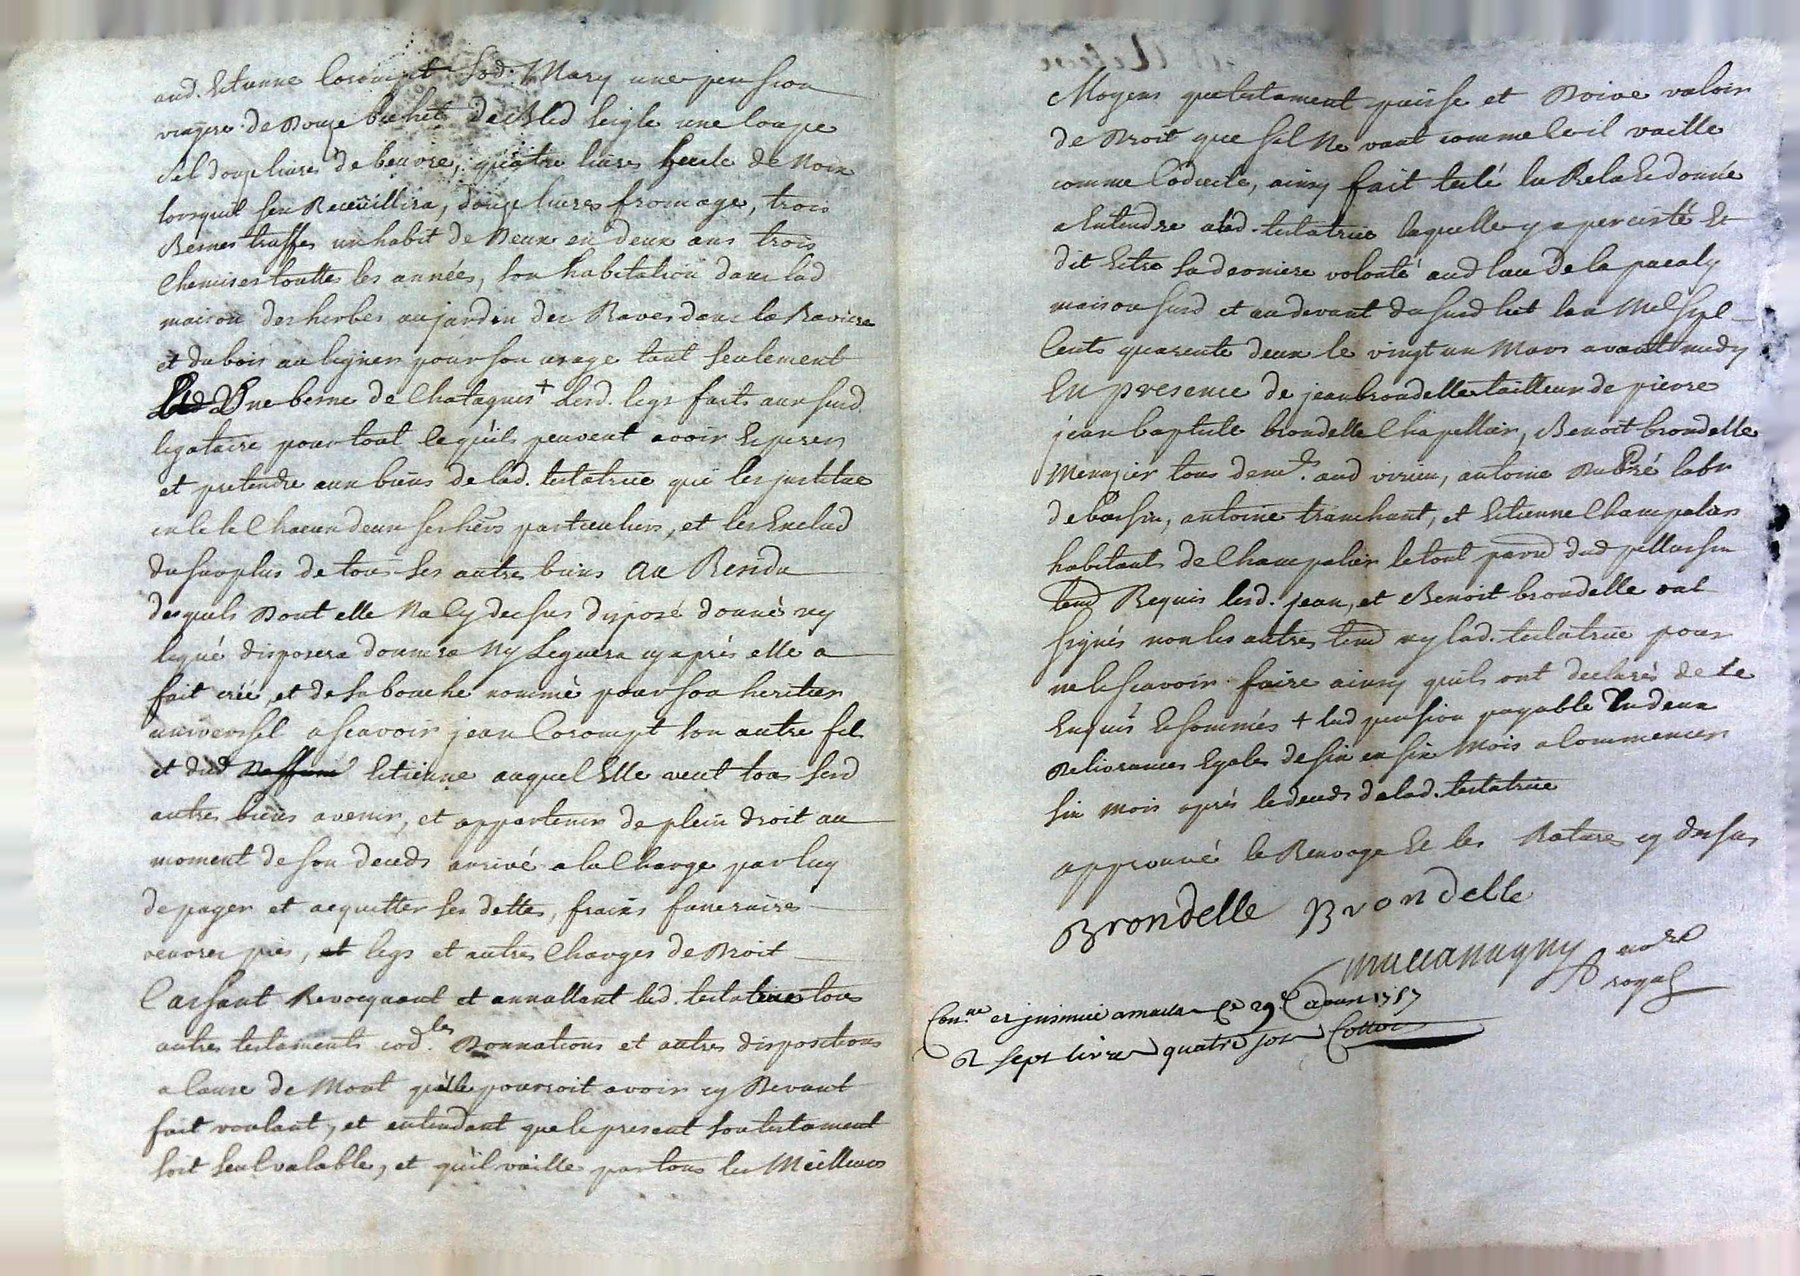 aud. Estienne Corompt sod. Mary une pension
viagere de Douze bichets de Bled seigle une coupe
sel douze livres de beurre, quatre livres huile de Noix
lorsquil sen Receüillira, douze livres fromage, trois
Bennes truffes un habit de Deux en deux ans trois
Chemises toutte les années, son habitation dans lad
maison des herbes au jardin des Raves dans la Raviere
et du bois au ligner pour son usage tant seulement
Une benne de Chatagnes + Lesd. legs faits aux susd
legataire pour tout ce quils peuvent avoir Esperer
et pretendre aux biens de lad. testatrice qui les justitue
en ce le Chacun deux ses hers particuliers, et les Exclud
du surplus de tous ses autres biens au Residu
desquels Dont elle Na Cy dessus disposé donné ny
legué disposera donnera Ny Leguera cy après elle a
fait créé, et de sa bouche nommé pour son heritier
universsel ascavoir jean Corompt son autre fils
et dud Estienne auquel Elle veut tous sesd
autres biens avenir, et appartenir de plein droit au
moment de son deceds arrivé a la Charge par luy
de payer et acquitter ses dettes, frains funeraires
oeuvres pies, et legs et autres Charges de Droit
Cassant Revocquant et annullant lad. testatrice tous
autres testaments cod.les Donnations et autres dispositions
a Cause de Mort quelle pourroit avoir cy Devant
fait voulant, et entendant que le present son testament
soit seul valable, et quil vaille par tous les Meilleurs
Moyens que testament puisse et Doive valoir
de Droit que sil Ne vaut comme Cecil vaille
comme Codicile, ainsy fait testé lu Relu Et donné
a Entendre alad. testatrice laquelle y a percisté Et
dit Estre sa derniere volonté aud lieu de la
maison susd et au devant du susd lict lan Mil Sept
Cents quarente deux le vingt un Mars avant midy
En presence de jean brondelle tailleur de pierre
jean baptiste brondelle Chapellier, Benoit brondelle
Menager tous dem.ts aud virieu, antoine Dubré labr
de bassin, antoine tranchant, et Estienne Champalier
habitants de Champalier le tout parr. dud pellussin
tem Requis lesd. jean, et Benoit brondelle ont
signés non les autres tem ny lad. testatrice pour
ne le scavoir faire ainsy quils ont declarés de ce
Enquis Et sommés + lad pension payable En deux
Delivrances Egales de six en six Mois a Commencer
six mois après le deceds de lad. testatrice
approuvé le Renvoye Et les Rature cy dessus
Brondelle Brondelle
nore
royal
Con.lle et jnsinué a ce 29e 1757
sept livres quatre sols